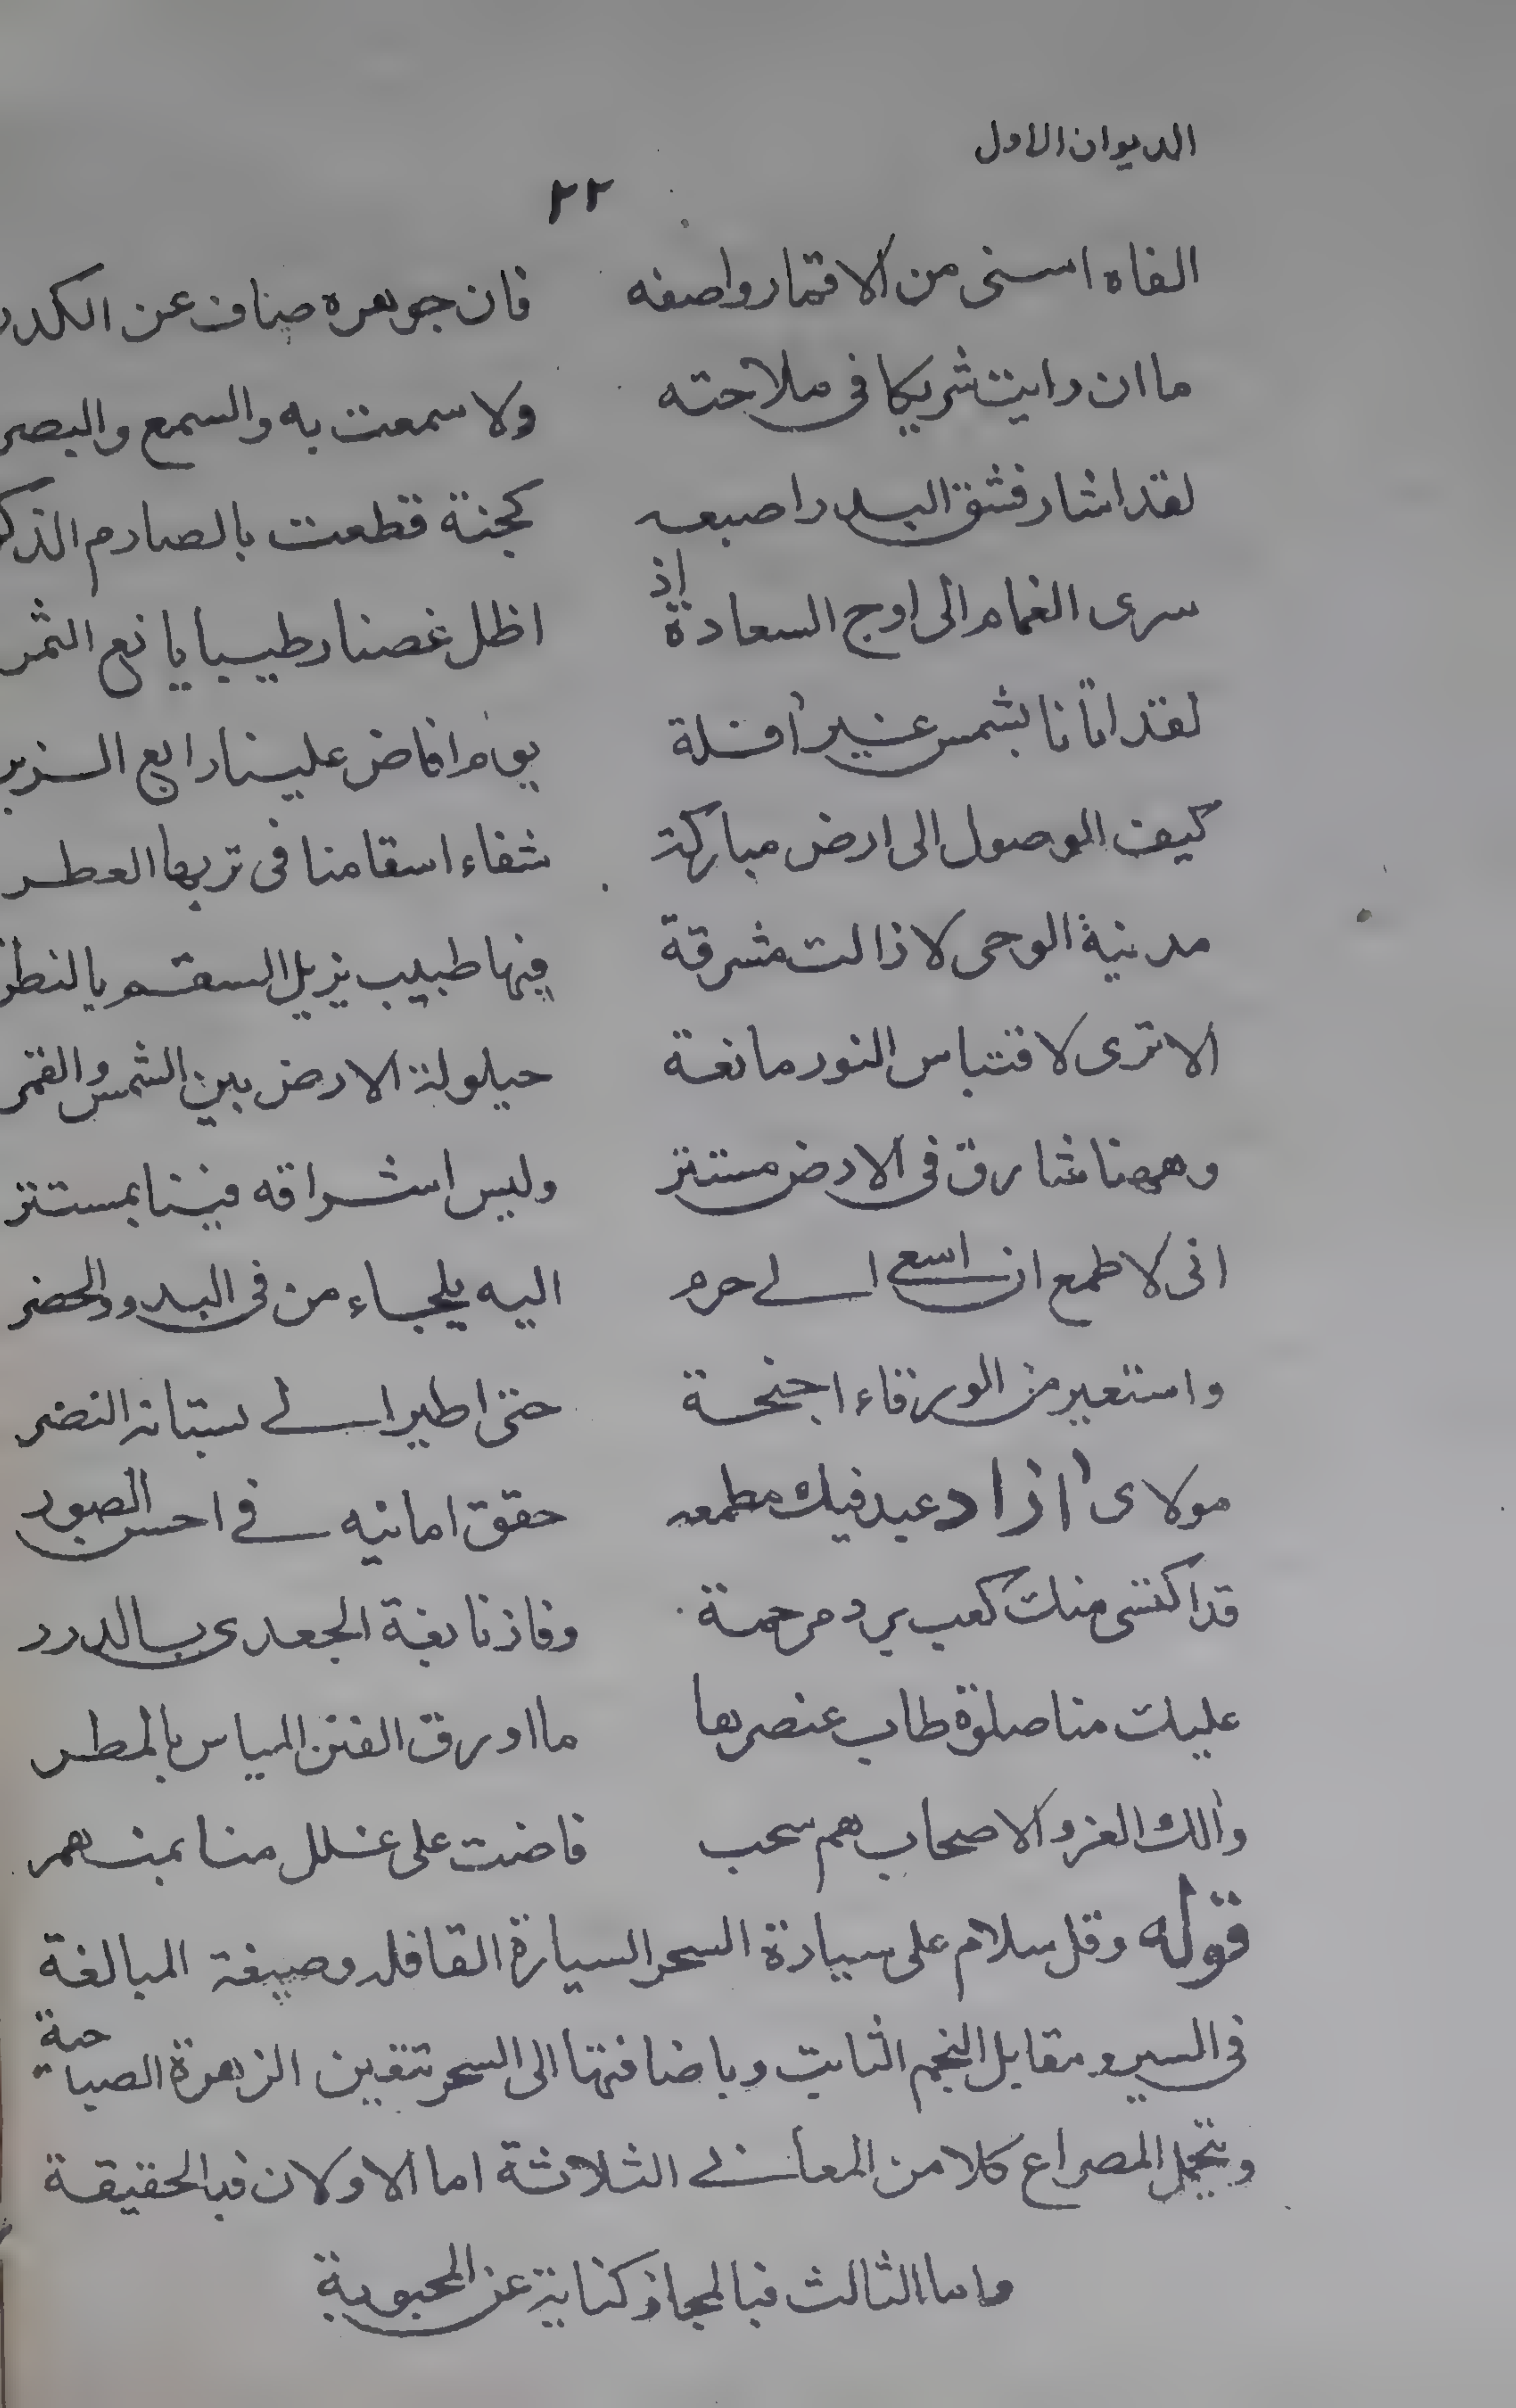 الديوان الاول
٢٢
الفاه اسنى من الاقمار واصفه فان جوهره صاف عن الكدر
ما ان رايت شريكا في ملاحته ولا سمعت به والسمع والبصر
لقد اشار فشق البدر اصبعه كجنة قطعت بالصارم الذكر
سرى الغمام الى اوج السعادة اذ اظل غصنا رطيبا يانع الثمر
لقد اتانا بشمس غير آفلة يوم افاض علينا رابع الزبر
كيف الوصول الى ارض مباركة شفاء اسقامنا في تربها العطر
مدينة الوحى لا زالت مشرقة فيها طبيب يزيل السقم بالنظر
الا ترى لاقتباس النور مانعة حيلولة الارض بين الشمس والقمر
وههنا شارق في الارض مستتر وليس اشراقه فينا بمستتر
انى لاطمع ان اسعى الى حرم اليه يلجاء من في البدو والحضر
واستعير من الورقاء اجنحة حتى اطير الى بستانه النضر
مولاى آزاد عبد فيك مطمعه حقق امانيه في احسن الصور
قد اكتسى منك كعب برد مرحمة وفاز نابغة الجعدى بالدرر
عليك منا صلوة طاب عنصرها ما اورق الفنن المياس بالمطر
وآلك الغر والاصحاب هم سحب فاضت على غلل منا بمنهمر
قوله وقل سلام على سيارة السحر السيارة القافلة وصيغة المبالغة
في السير ومقابل النجم الثابت وباضافتها الى السحر تتعين الزهرة الصباحية
ويتحمل المصراع كلا من المعانى الثلاثة اما الاولان فبالحقيقة
واما الثالث فبالمجاز كناية عن المحبوبة